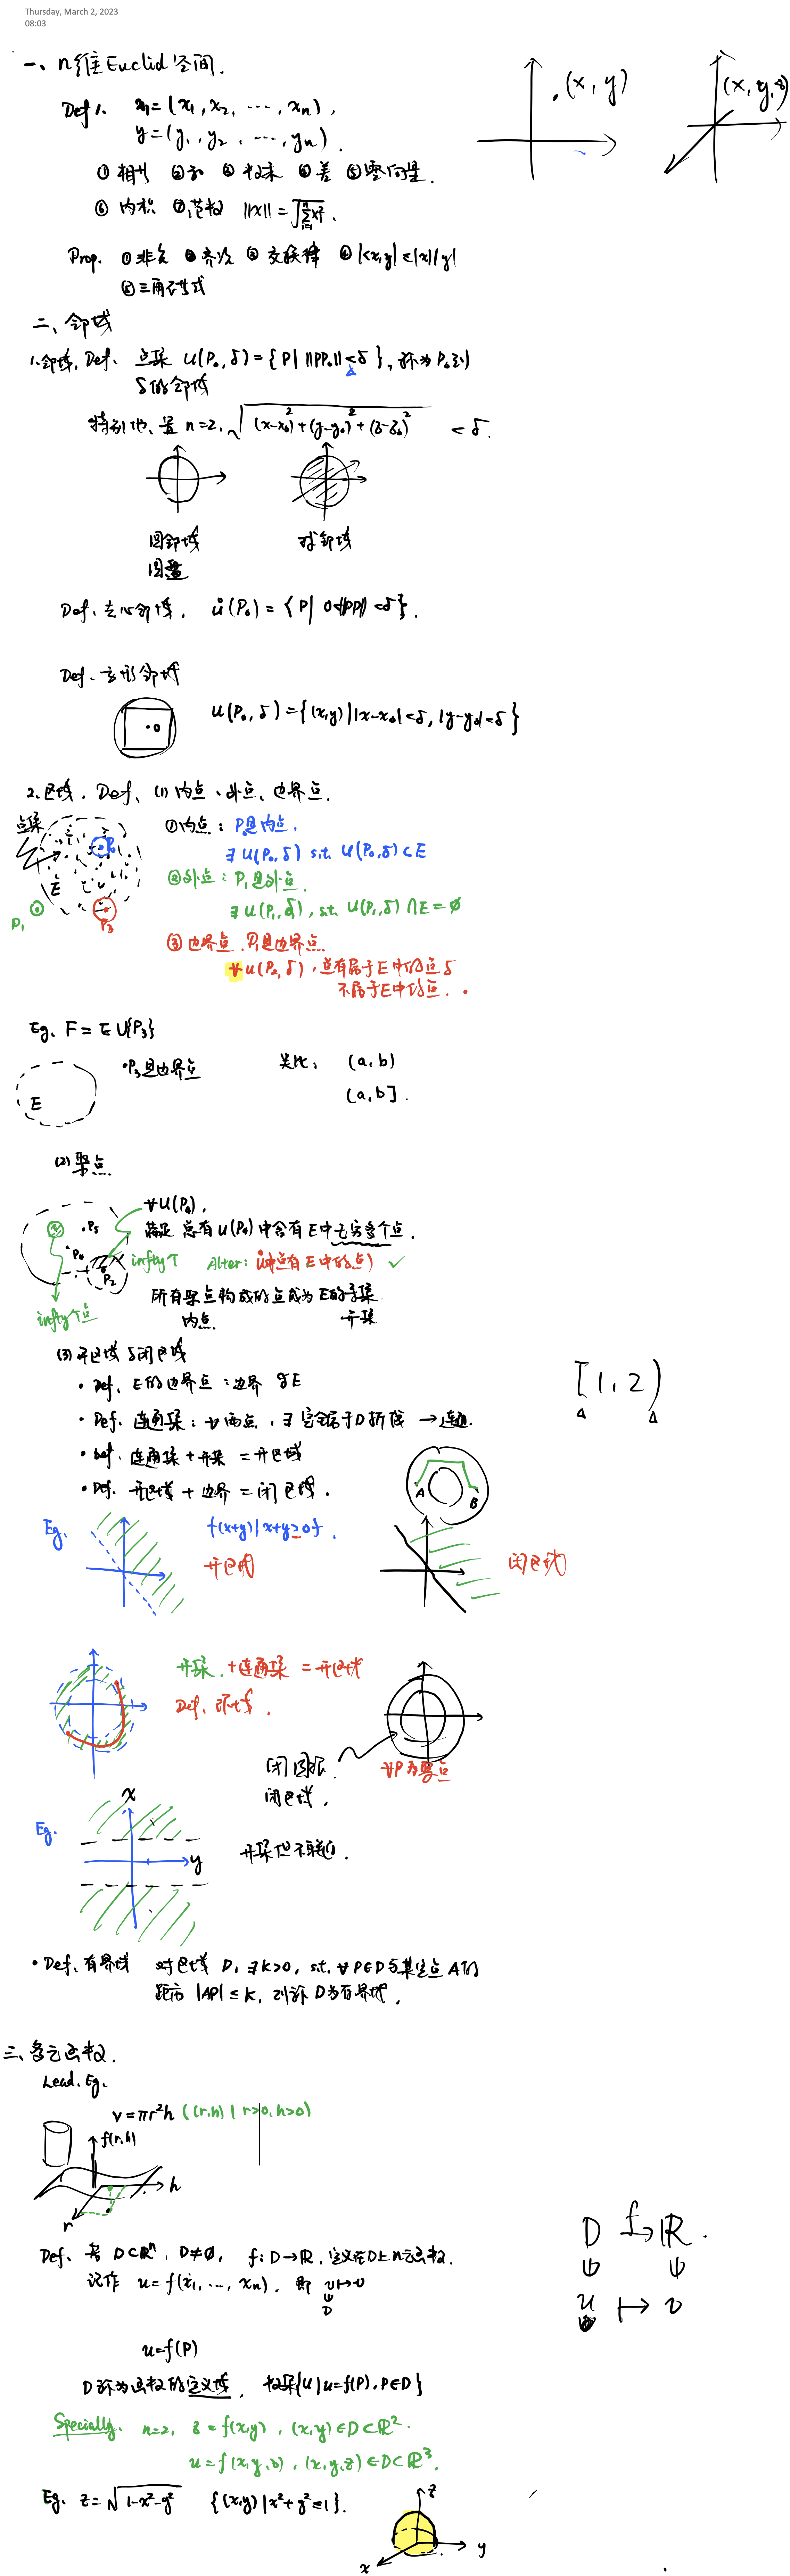 Thursday, March 2, 2023
08:03
一、n维Euclid空间.
Def 1. x=(x₁, x₂, ⋯, xₙ),
y=(y₁, y₂, ⋯, yₙ).
(x, y)
(x, y, z)
① 相等 ② 和 ③ 数乘 ④ 差 ⑤ 零向量.
⑥ 内积 ⑦ 范数 ||x|| = √(∑ᵢ₌₁ⁿ xᵢ²).
Prop. ① 非负 ② 齐次 ③ 交换律 ④ |<x,y>| ≤ |x||y|
⑤ 三角不等式
二、邻域
1.邻域. Def. 点集 U(P₀, δ) = {P | ||PP₀|| < δ}, 称为P₀的
δ的邻域
特别地、当 n=2, √((x-x₀)²+(y-y₀)²+(z-z₀)²) < δ.
圆邻域
圆盘
球邻域
Def. 去心邻域. ů(P₀) = {P | 0<||PP₀|| <δ}.
Def. 方形邻域
U(P₀, δ) = {(x,y) | |x-x₀|<δ, |y-y₀|<δ}
2.区域. Def. (1) 内点、外点、边界点.
点集
E
P₁
P₃
① 内点: P₀是内点.
∃ U(P₀, δ) s.t. U(P₀, δ) ⊂ E
② 外点: P₁是外点.
∃ U(P₁, δ), s.t. U(P₁, δ) ∩ E = ∅
③ 边界点.
∀ U(P₂, δ), 总有属于E中的点&
不属于E中的点.
Eg. F = E ∪{P₃}
E
·P₃是边界点
类比: (a, b)
(a, b].
(2) 聚点
∀ U(P₀),
满足 总有U(P₀)中含有E中无穷多个点.
P₅
P₀
P₂
infty个
Alter: ů中总有E中的点) ✓
infty个点
所有聚点构成的点成为E的导集
内点
开集
(3) 开区域&闭区域
[1, 2)
• Def. E的边界点: 边界 ∂E
• Def. 连通集: ∀两点, ∃完全属于D折线 → 连通.
• Def. 连通集 + 开集 = 开区域
• Def. 开区域 + 边界 = 闭区域.
A
B
Eg.
{(x+y) | x+y≥0}.
开区域
闭区域
开集. +连通集 = 开区域
Def. 环域.
闭圆环.
闭区域.
∀P为聚点
Eg.
x
y
开集但不联通.
• Def. 有界域 对区域 D, ∃K>0, s.t. ∀P∈D与某定点A的
距离 |AP| ≤ K, 则称 D为有界域.
三、多元函数.
Lead. Eg.
V = πr²h ((r,h) | r>0, h>0)
f(r,h)
h
r
Def. 若 D⊂ℝⁿ, D≠∅, f: D→ℝ, 定义在D上n元函数.
记作 u = f(x₁, ..., xₙ), 即 u↦v
D
D f→ ℝ.
u ↦ v
u=f(P)
D称为函数的定义域, 数集{u | u=f(P), P∈D}
Specially. n=2, z = f(x,y), (x,y)∈D⊂ℝ².
u = f(x,y,z), (x,y,z)∈D⊂ℝ³.
Eg. z = √(1-x²-y²) {(x,y) | x²+y²≤1}.
z
y
x